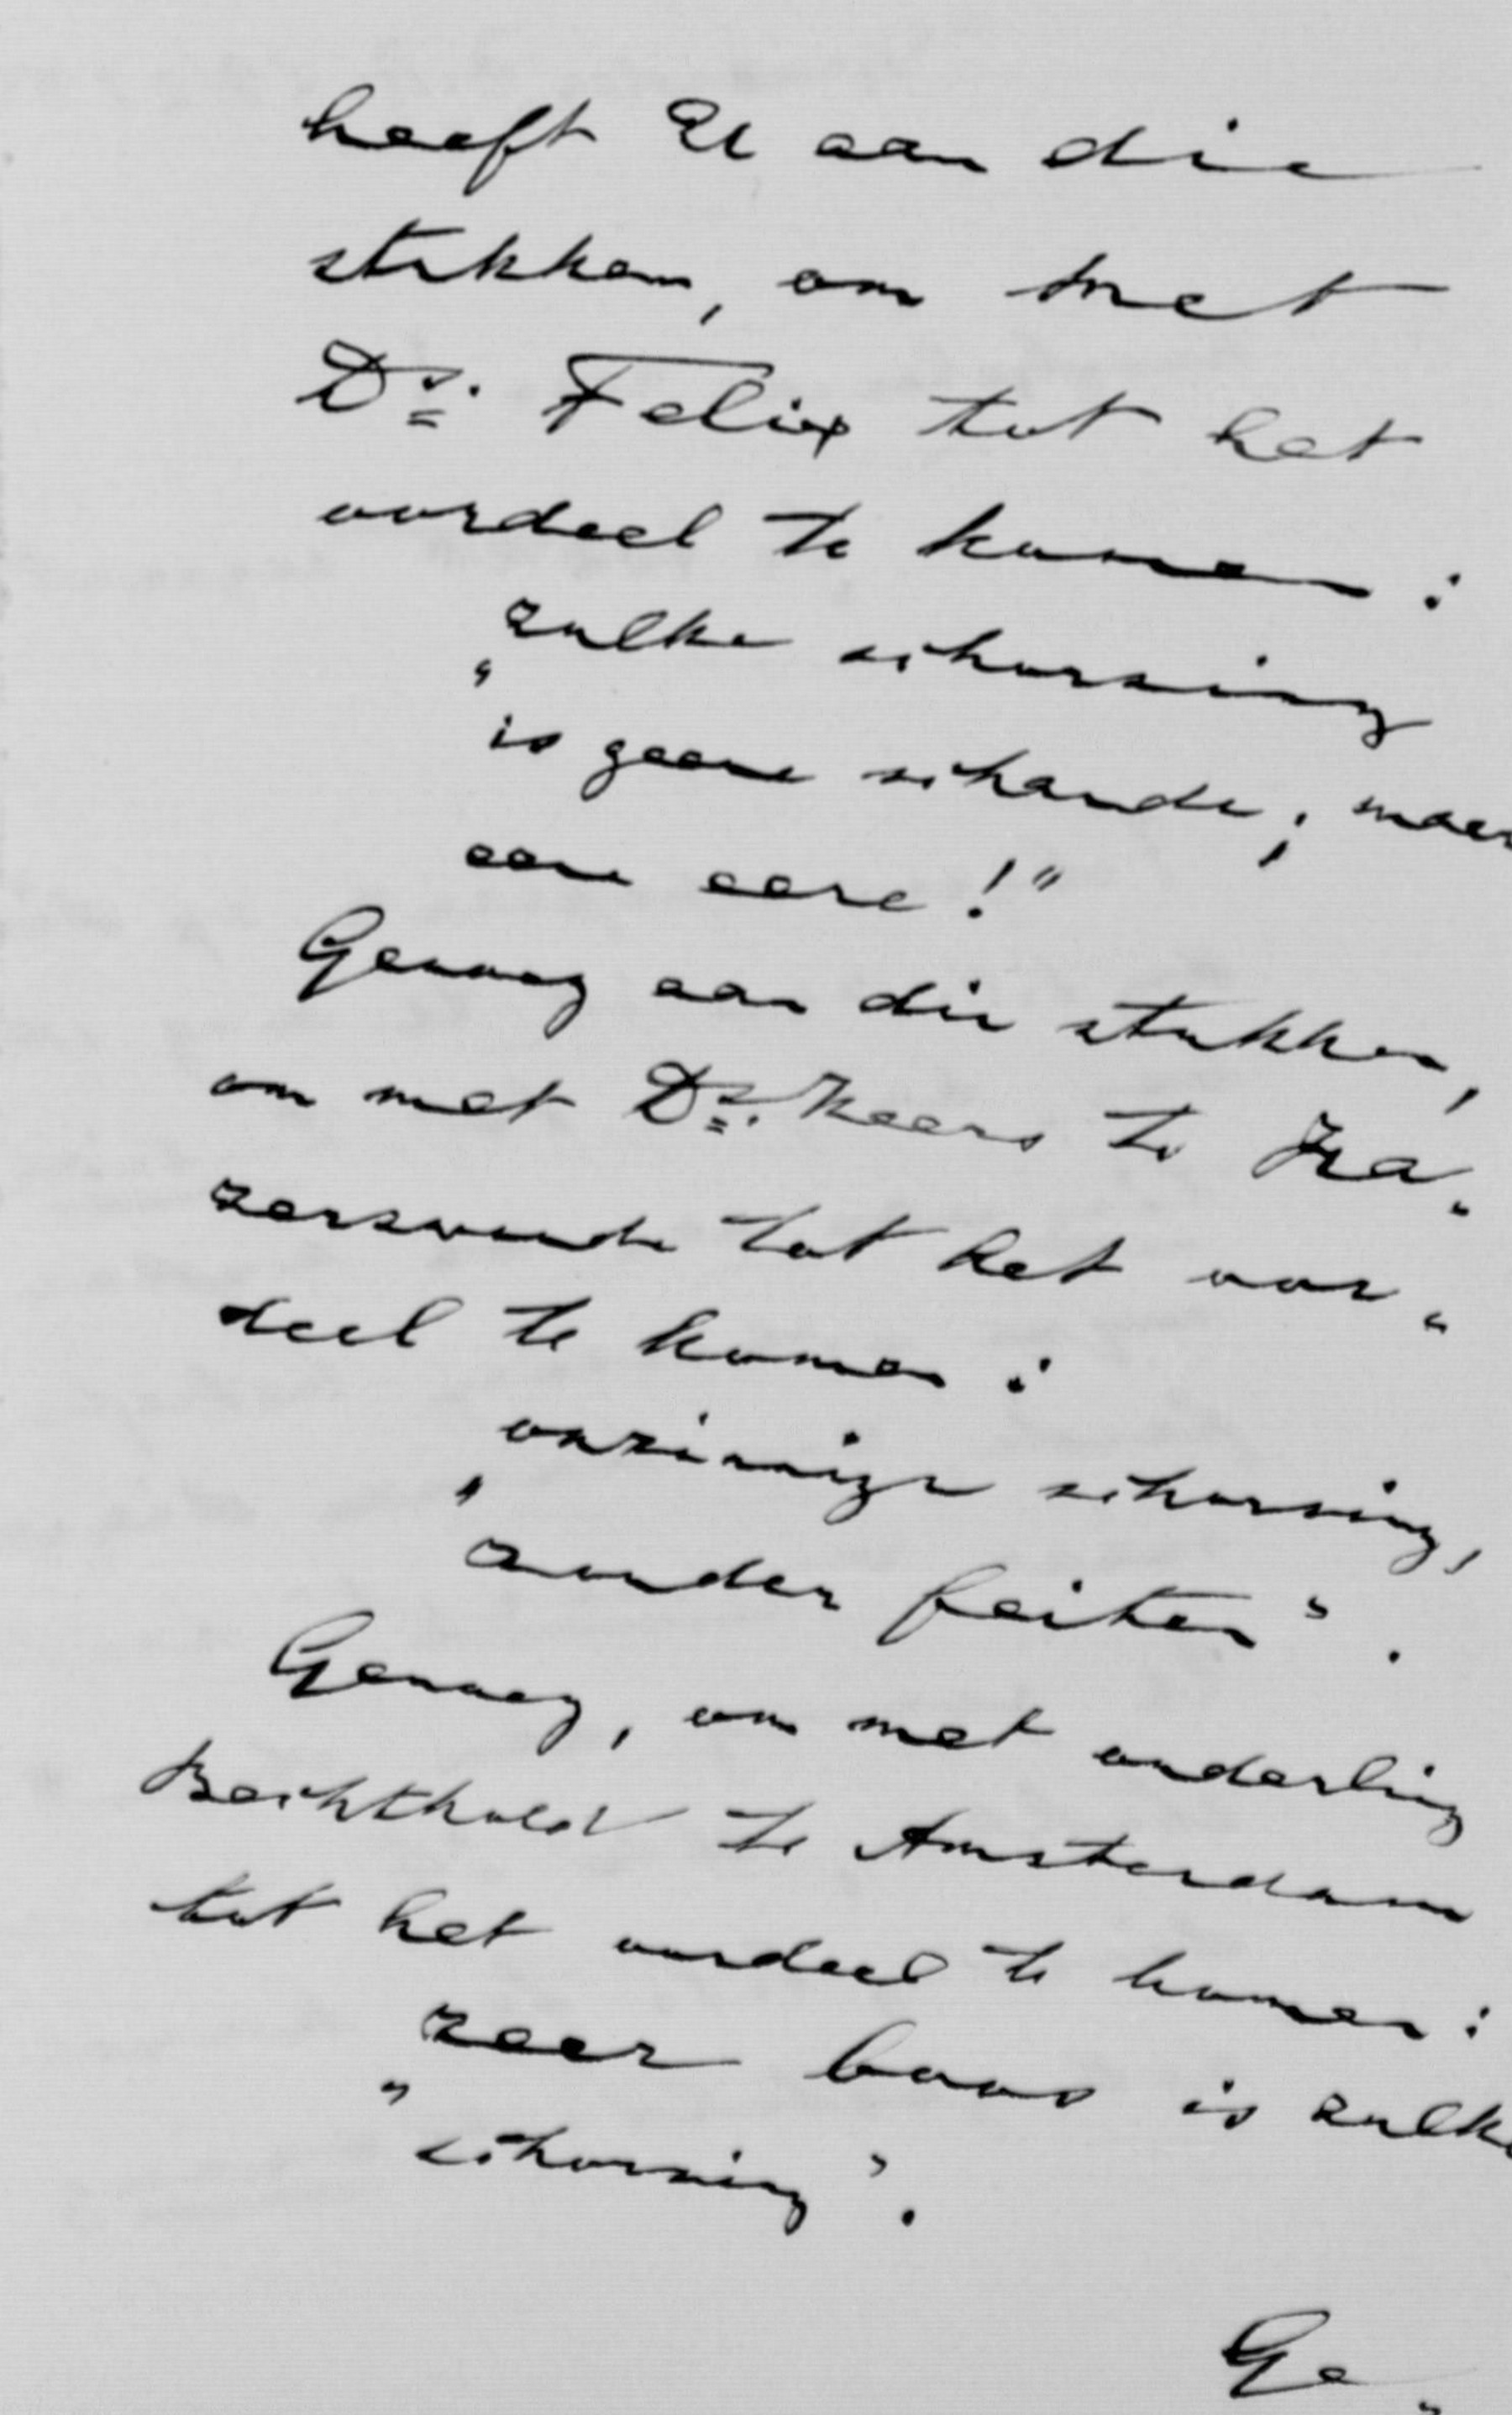 heeft U aan die
stukken, om met
Ds. Felix tot het
oordeel te komen:
„zulke schorsing
is geene schande; maar
eene eere!"
Genoeg aan die stukken,
om met Ds. Keers te Ha-
zerswoude tot het oor-
deel te komen:
„onzinnige schorsing,
zonder feiten".
Genoeg, om met ouderling
Bechthold te Amsterdam
tot het oordeel te komen:
„zeer boos is zulke
schorsing".
Ge-